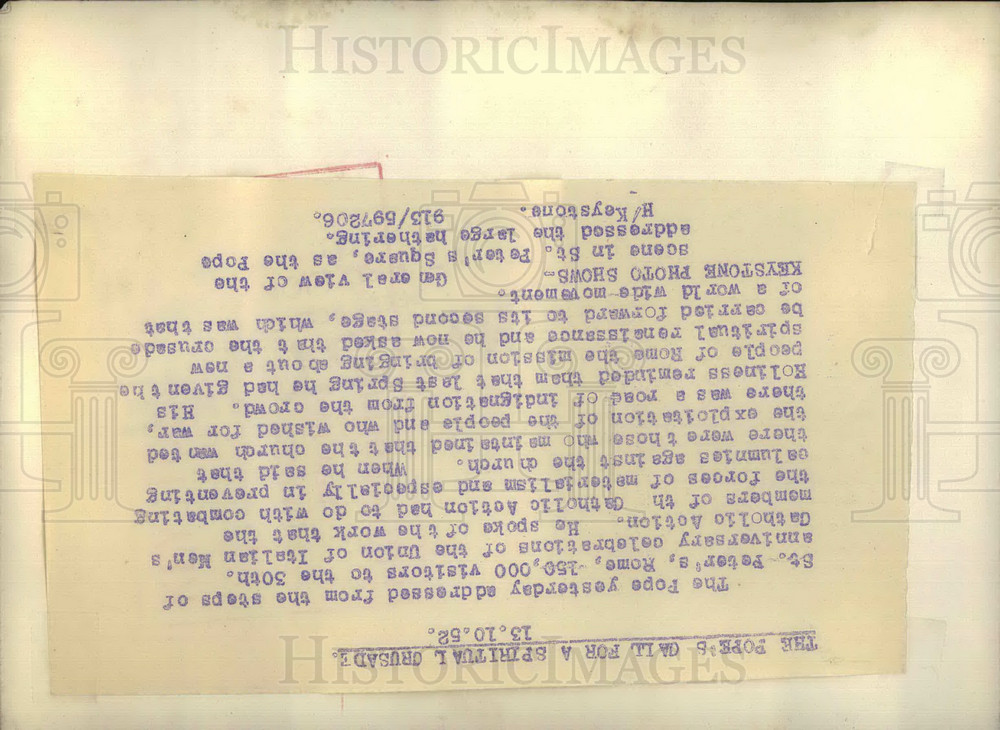 THE POPE'S CALL FOR A SPIRITUAL CRUSADE.
13.10.52.
The Pope yesterday addressed from the steps of
St. Peter's, Rome, 150,000 visitors to the 30th.
anniversary celebrations of the Union of Italian Men's
Catholic Action. He spoke of the work that the
members of th Catholic Action had to do with combating
the forces of materialism and especially in preventing
calumnies against the church. When he said that
there were those who maintained that the church wanted
the exploitation of the people and who wished for war,
there was a road of indignation from the crowd. His
Holiness reminded tham that last Spring he had given the
people of Rome the mission of bringing about a new
spiritual renaissance and he now asked that the crusade
be carried forward to its second stage, which was that
of a world wide movement.
KEYSTONE PHOTO SHOWS- General view of the
scene in St. Peter's Square, as the Pope
addressed the large hathering.
H/Keystone. 913/597206.
HISTORICIMAGES
HISTORICIMAGES